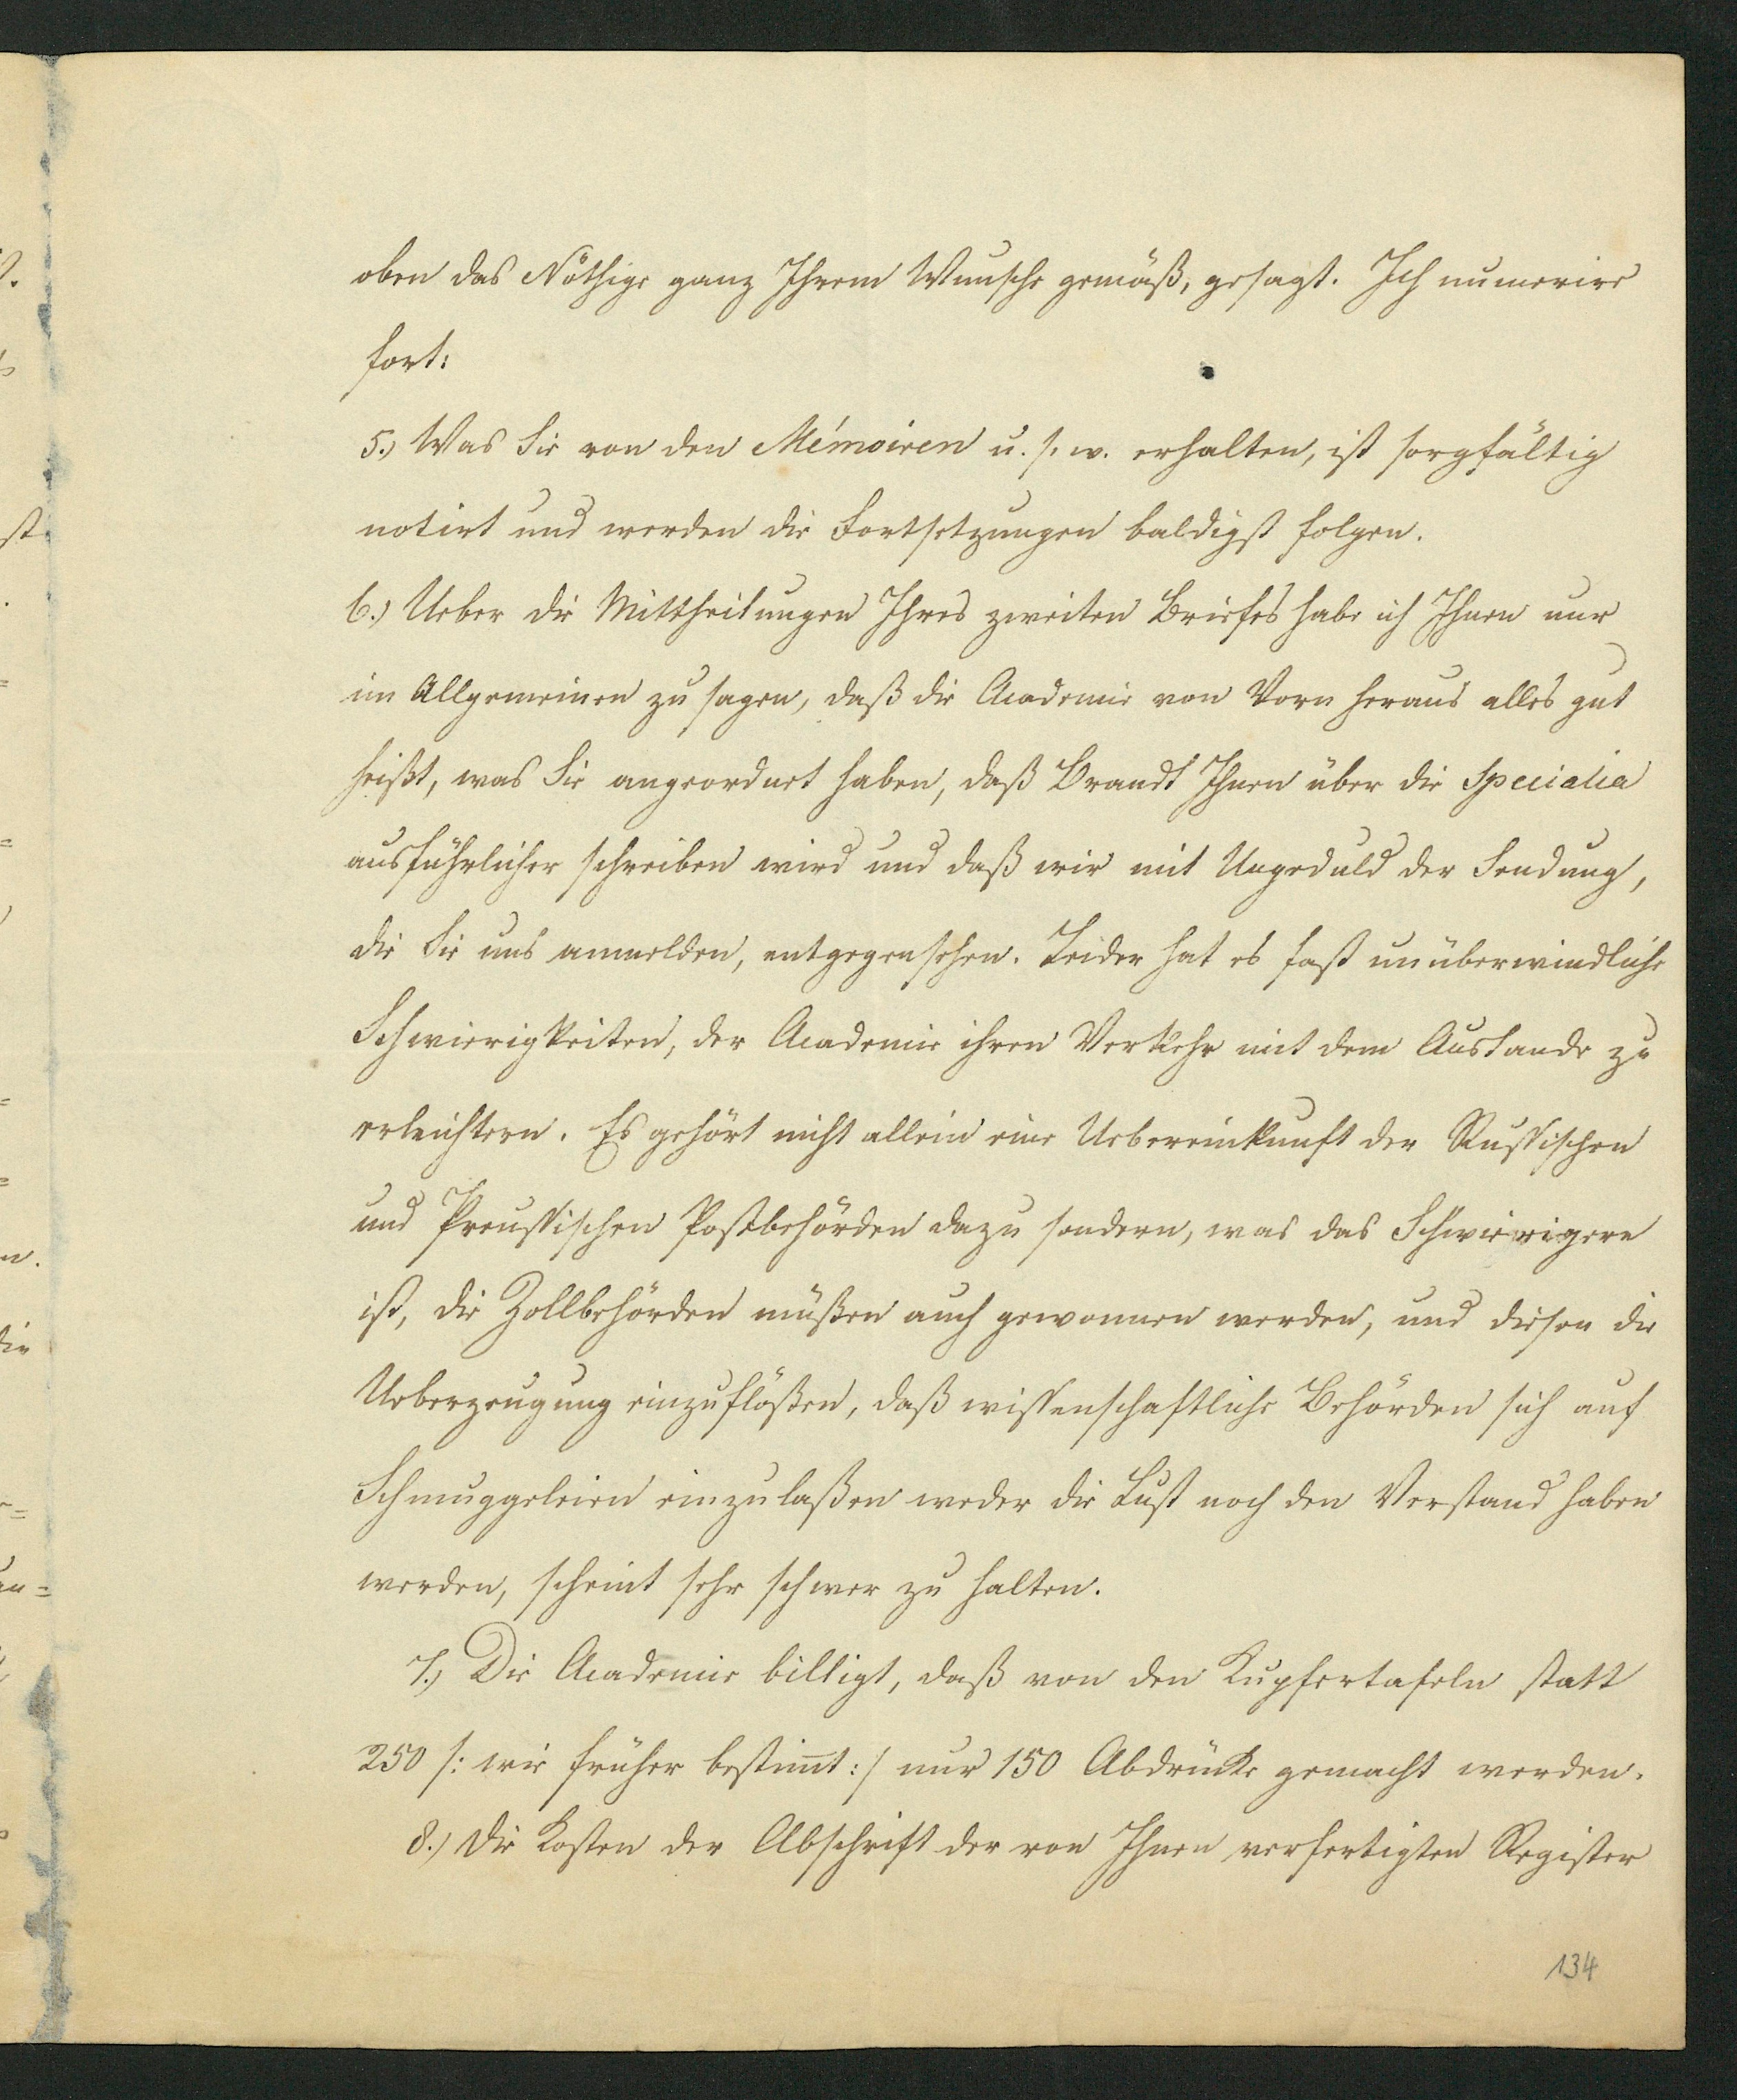 oben das Nöthige ganz Ihrem Wunsche gemäß, gesagt. Ich numerire
fort:
5.) Was Sie von den Mémoiren u. s. w. erhalten, ist sorgfältig
notirt und werden die Fortsetzungen baldigst folgen.
6.) Ueber die Mittheilungen Ihres zweiten Briefes habe ich Ihnen nur
im Allgemeinen zu sagen, daß die Academie von Vorn heraus alles gut
heißt, was Sie angeordnet haben, daß Brandt Ihnen über die Specialia
ausführlicher schreiben wird und daß wir mit Ungeduld der Sendung,
die Sie uns anmelden, entgegensehen. Leider hat es fast unüberwindliche
Schwierigkeiten, der Academie ihren Verkehr mit dem Auslande zu
erleichtern. Es gehört nicht allein eine Uebereinkunft der Russischen
und Preussischen Postbehörden dazu sondern, was das Schwierigere
ist, die Zollbehörden müßen auch gewonnen werden, und diesen die
Ueberzeugung einzuflößen, daß wissenschaftliche Behörden sich auf
Schmuggeleien einzulaßen weder die Lust noch den Verstand haben
werden, scheint sehr schwer zu halten.
7.) Die Academie billigt, daß von den Kupfertafeln statt
250 /: wie früher bestim̄t :/ nur 150 Abdrücke gemacht werden.
8.) Die Kosten der Abschrift der von Ihnen verfertigten Register
134